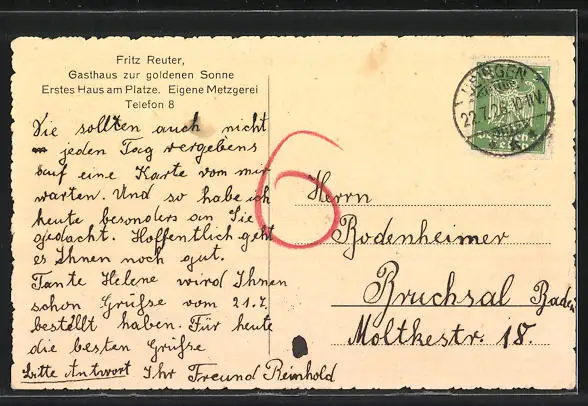 Fritz Reuter,
Gasthaus zur goldenen Sonne
Erstes Haus am Platze. Eigene Metzgerei
Telefon 8
Sie sollten auch nicht
jeden Tag vergebens
auf eine Karte von mir
warten. Und so habe ich
heute besonders an Sie
gedacht. Hoffentlich geht
es Ihnen noch gut.
Tante Helene wird Ihnen
schon Grüfse vom 21.7.
bestellt haben. Für heute
die besten Grüfse
Bitte Antwort Ihr Freund Reinhold
6
Herrn
Bodenheimer
Bruchsal Baden
Moltkestr. 18.
22.7.26. 10-11V.